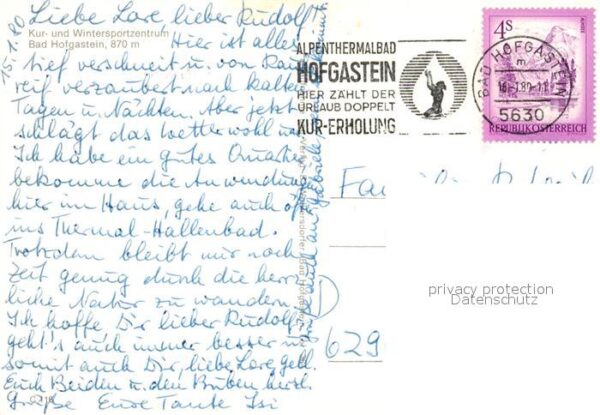 15.1.80
Kur- und Wintersportzentrum
Bad Hofgastein, 870 m
Liebe Lore, lieber Rudolf!
Hier ist alles
tief verschneit u. von Rau
reif verzaubert nach kalten
Tagen u. Nächten. Aber jetzt
schlägt das Wetter wohl um.
Ich habe ein gutes Quartier
bekomme die Anwendung
hier im Haus, gehe auch oft
ins Thermal-Hallenbad.
Trotzdem bleibt mir noch
Zeit genug durch die herr
liche Natur zu wandern.
Ich hoffe Dir lieber Rudolf
geht's auch immer besser u.
somit auch Dir, liebe Lore gell.
Euch Beiden u. den Buben herzl.
Grüße Eure Tante Isi
ALPENTHERMALBAD
HOFGASTEIN
HIER ZÄHLT DER
URLAUB DOPPELT
KUR-ERHOLUNG
4S
BAD HOFGASTEIN
5630
REPUBLIK ÖSTERREICH
D
629
privacy protection
Datenschutz